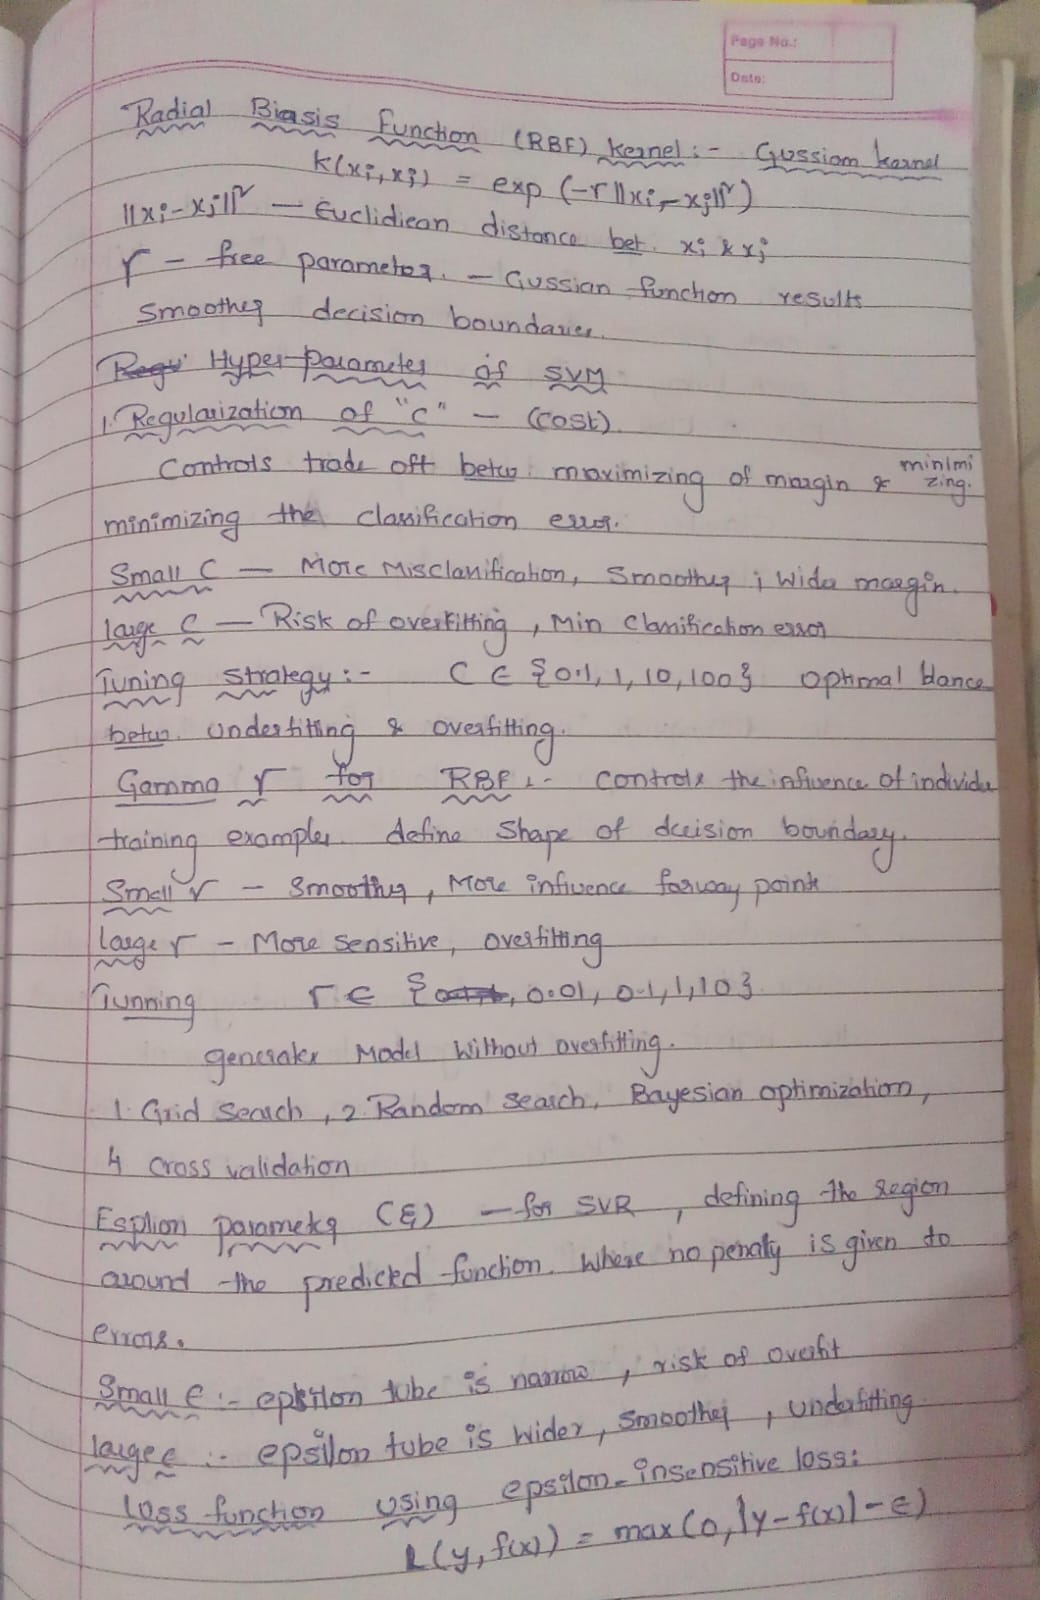 Page No.:
Date:
Radial Biasis Function (RBF) kernel :- Gussiom kernel
K(xi, xj) = exp (-r||xi - xj||²)
||xi - xj||² — Euclidiean distance bet. xi & xj
r - free parameter. - Gussian function results
Smoother decision boundaries.
Regu Hyper-parameter of SVM
1. Regularization of "C" - (cost)
Controls trade off betw. maximizing of margin & minimizing.
minimizing the classification error.
Small C — More Misclassification, Smoother ; Wider margin.
large C — Risk of overfitting, Min Classification error
Tuning Strategy :- C ∈ {0.1, 1, 10, 100} Optimal blance
betwn. Underfitting & overfitting.
Gamma r for RBF :- Controls the influence of individu
training examples. define Shape of decision boundary.
Small r - Smoother, More influence farway point
large r - More sensitive, overfitting
Tunning r ∈ { 0.01, 0.1, 1, 10}
generalex Model Without overfitting.
1. Grid Search, 2 Random Search, Bayesian optimization,
4 cross validation
Esplion parameter (ε) — for SVR, defining the region
around the predicted function. Where no penalty is given to
errors.
Small ε :- epksilon tube is narrow, risk of overfit
large ε :- epsilon tube is wider, smoother, Underfitting
Loss function using epsilon-insensitive loss:
L(y, f(x)) = max(0, |y - f(x)| - ε)